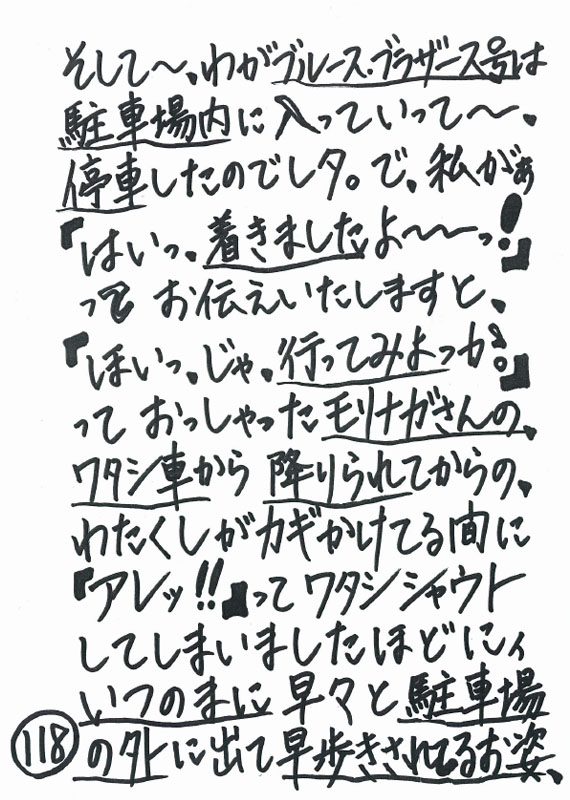 そして〜、わがブルース・ブラザース号は
駐車場内に入っていって〜、
停車したのでしタ。で、私がぁ
『はいっ、着きましたよ〜〜っ!』
って お伝えいたしますと、
『ほいっ、じゃ、行ってみよっか。』
って おっしゃったモリナガさんの、
ワタシ車から 降りられてからの、
わたくしがカギかけてる間に
『アレッ!!』って ワタシシャウト
してしまいましたほどにィ
いつのまに早々と駐車場
の外に出て早歩きされてるお姿、
118